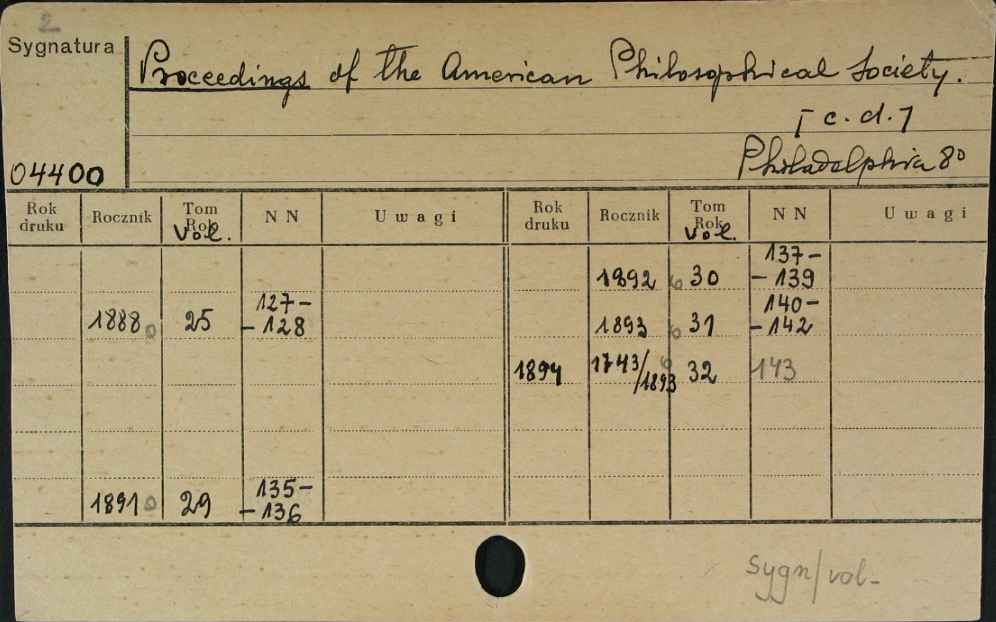 2
Sygnatura
Proceedings of the American Philosophical Society.
[c.d.]
Philadelphia 8°
04400
Rok druku Rocznik Tom Rok Vol. NN Uwagi Rok druku Rocznik Tom Rok Vol. NN Uwagi
1892 30 137-
-139
1888 25 127-
-128
1893 31 140-
-142
1894 1743/1893 32 143
1891 29 135-
-136
sygn/vol-